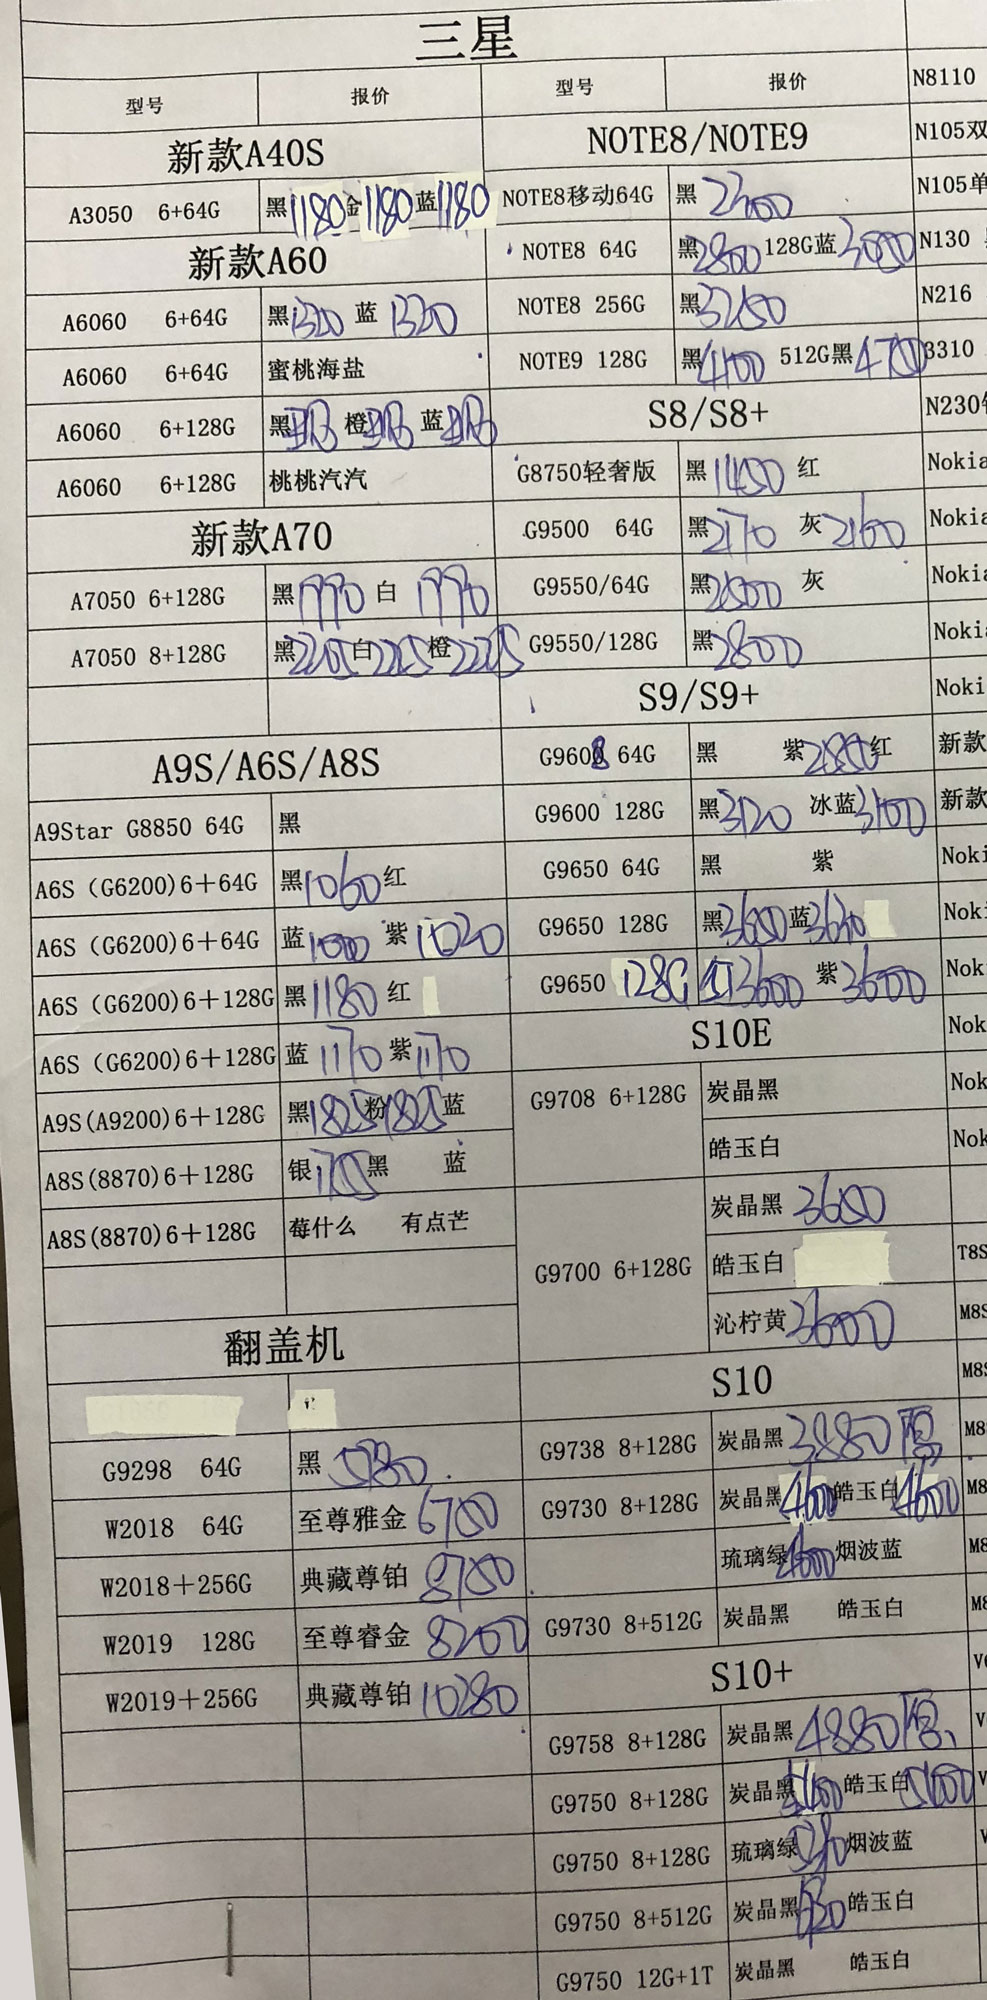 三星
型号 报价
新款A40S
A3050 6+64G 黑1180金1180蓝1180
新款A60
A6060 6+64G 黑1320 蓝 1320
A6060 6+64G 蜜桃海盐
A6060 6+128G 黑 橙 蓝
A6060 6+128G 桃桃汽汽
新款A70
A7050 6+128G 黑1990 白 1990
A7050 8+128G 黑 白 橙
A9S/A6S/A8S
A9Star G8850 64G 黑
A6S (G6200)6+64G 黑1060红
A6S (G6200)6+64G 蓝1000 紫1020
A6S (G6200)6+128G 黑1180 红
A6S (G6200)6+128G 蓝 1170 紫1170
A9S(A9200)6+128G 黑1825粉1825蓝
A8S(8870)6+128G 银 黑 蓝
A8S(8870)6+128G 莓什么 有点芒
翻盖机
G9298 64G 黑
W2018 64G 至尊雅金 6700
W2018+256G 典藏尊铂
W2019 128G 至尊睿金 8200
W2019+256G 典藏尊铂 10280
型号 报价
NOTE8/NOTE9
NOTE8移动64G 黑 2300
NOTE8 64G 黑2800 128G蓝3000
NOTE8 256G 黑3250
NOTE9 128G 黑4100 512G黑4750
S8/S8+
G8750轻奢版 黑1450 红
G9500 64G 黑2170 灰2160
G9550/64G 黑2500 灰
G9550/128G 黑2800
S9/S9+
G9608 64G 黑 紫2850红
G9600 128G 黑3120 冰蓝3100
G9650 64G 黑 紫
G9650 128G 黑3650蓝3630
G9650 128G 红3600 紫3600
S10E
G9708 6+128G 炭晶黑
皓玉白
G9700 6+128G 炭晶黑 3650
皓玉白
沁柠黄3600
S10
G9738 8+128G 炭晶黑3880原
G9730 8+128G 炭晶黑4600皓玉白4600
琉璃绿4600烟波蓝
G9730 8+512G 炭晶黑 皓玉白
S10+
G9758 8+128G 炭晶黑4880原
G9750 8+128G 炭晶黑5100皓玉白5100
G9750 8+128G 琉璃绿 烟波蓝
G9750 8+512G 炭晶黑 皓玉白
G9750 12G+1T 炭晶黑 皓玉白
N8110
N105双
N105单
N130
N216
3310
N230
Nokia
Nokia
Nokia
Nokia
Noki
新款
新款
Noki
Noki
Nok
Nok
Nok
Nok
T8S
M8S
M8S
M8
M8
M8
M8
V
V